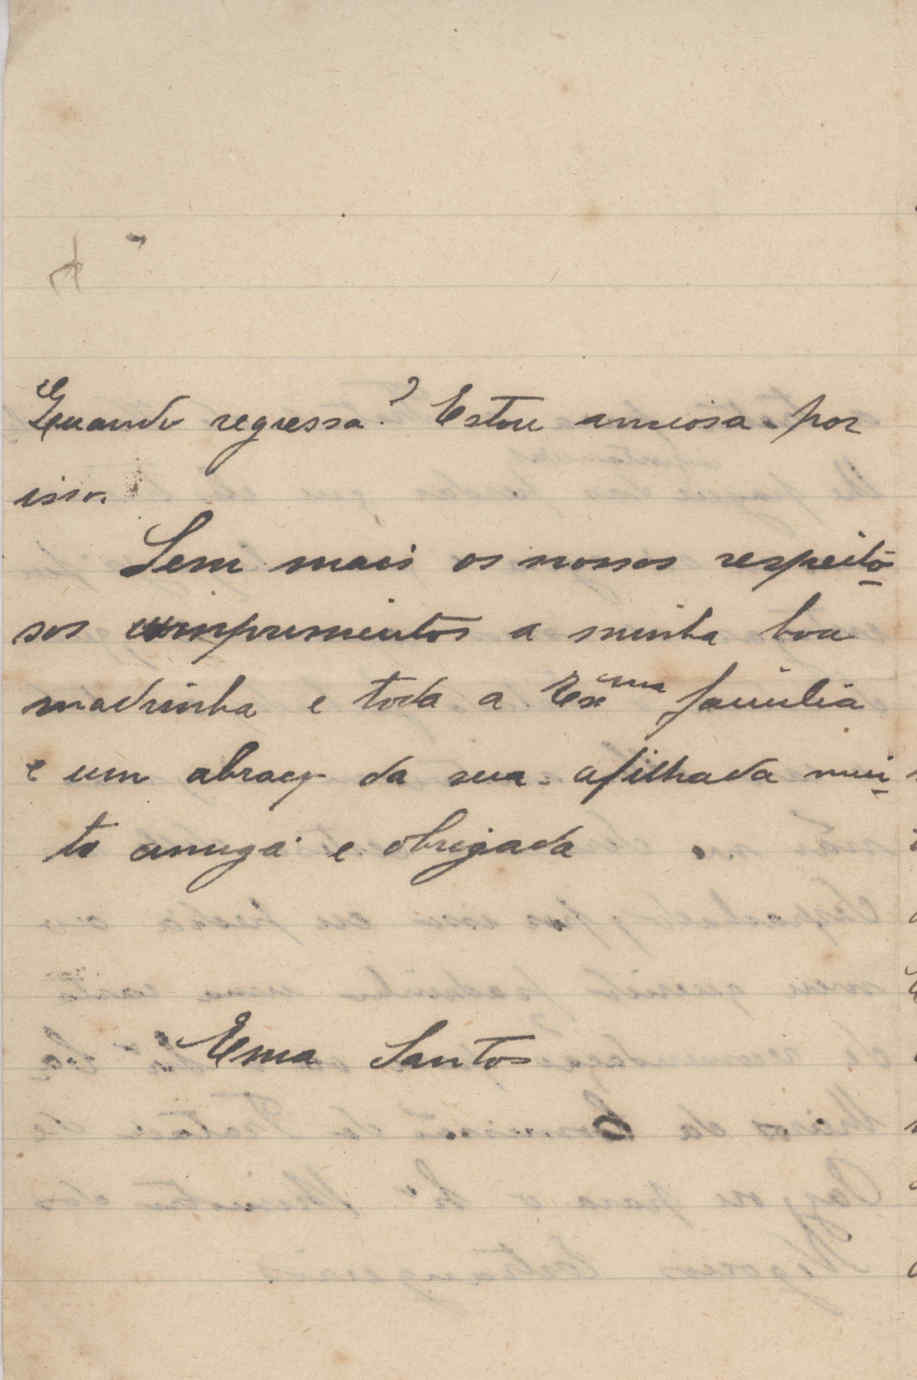 Quando regressa? Estou anciosa por
isso.
Sem mais os nossos respeito-
sos cumprimentos a minha boa
madrinha e toda a Exma família
e um abraço da sua afilhada mui-
to amiga e obrigada
Ema Santos